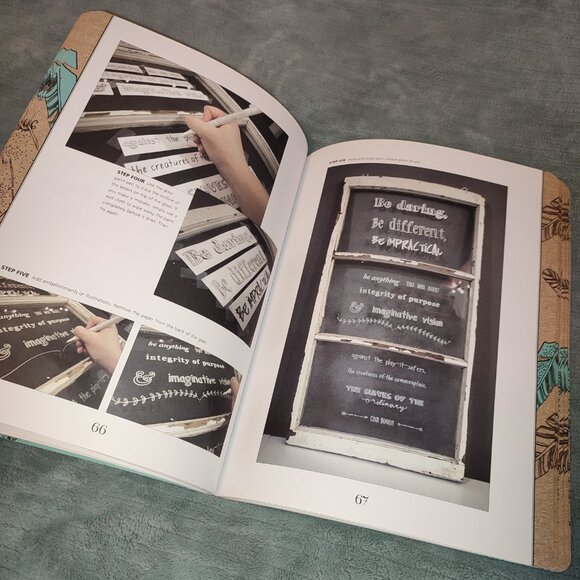 against the play
the creatures of
STEP FOUR Use the glass
paint pen to trace the outline of
the letters on top of the glass. If
you make a mistake, simply use a
wet cloth to wipe away the paint
completely before it dries. Then
try again.
Be daring,
Be different,
Be IMPRACTICAL
STEP FIVE Add embellishments or illustrations. Remove the paper from the back of the glass.
imaginative
be anything
integrity of purpose
& imaginative vision
66
STEP SIX
Be daring,
Be different,
Be IMPRACTICAL
be anything THAT WILL ASSERT
integrity of purpose
& imaginative vision
against the play-it-safers,
the creatures of the commonplace,
THE SLAVES OF THE
ordinary
CECIL BEATON
67